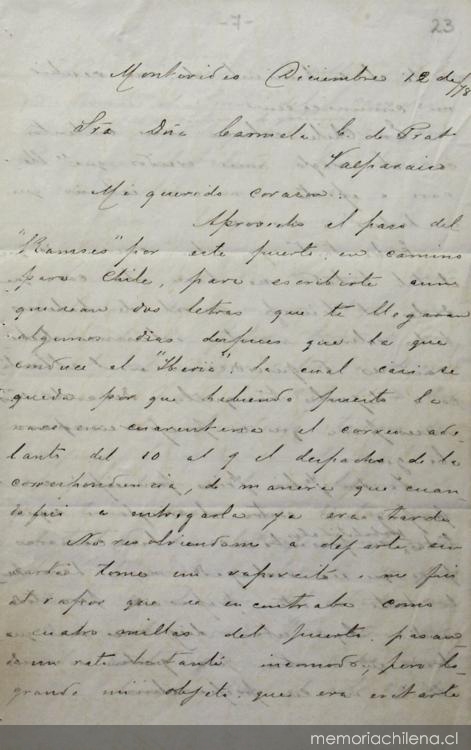 -7-
23
Montevideo Diciembre 12 de/78
Sra Doña Carmela C. de Prat
Valparaiso
Mi querido corazon:
Aprovecho el paso del
"Ramses" por este puerto, en camino
para Chile, para escribirte aun
que sean dos letras que te llegaran
algunos dias despues que la que
conduce el "Iberia" la cual casi se
queda por que habiendo puesto la
nave en cuarentena el correo ade
lanto del 10 al 9 el despacho de la
correspondencia, de manera que cuan
do fui a entregarla ya era tarde
No resolviendome a dejarte sin
carta tome un vaporcito i me fui
al vapor que se encontraba como
a cuatro millas del puerto, pasan
do un rato bastante incomodo, pero lo-
grando mi objeto que era evitarte
memoriachilena.cl